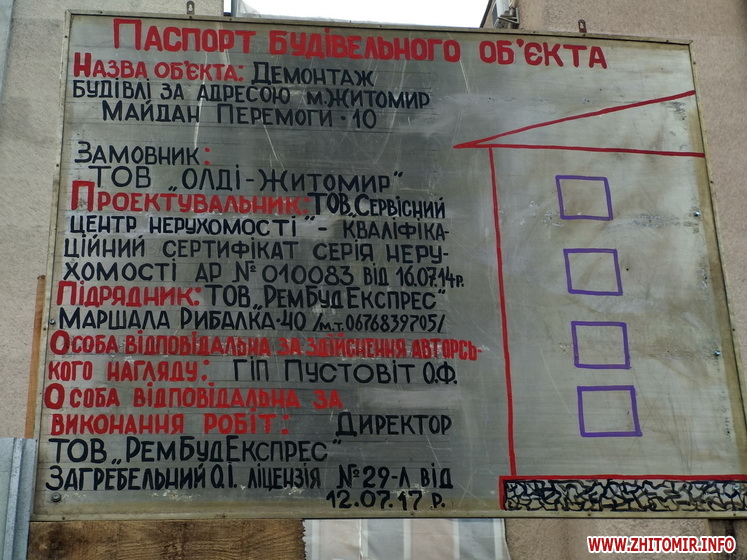 ПАСПОРТ БУДІВЕЛЬНОГО ОБ'ЄКТА
НАЗВА ОБ'ЄКТА: ДЕМОНТАЖ
БУДІВЛІ ЗА АДРЕСОЮ М.ЖИТОМИР
МАЙДАН ПЕРЕМОГИ - 10
ЗАМОВНИК:
ТОВ „ОЛДІ-ЖИТОМИР"
ПРОЕКТУВАЛЬНИК: ТОВ „СЕРВІСНИЙ
ЦЕНТР НЕРУХОМОСТІ" - КВАЛІФІКА-
ЦІЙНИЙ СЕРТИФІКАТ СЕРІЯ НЕРУ-
ХОМОСТІ АР № 010083 ВІД 16.07.14р.
ПІДРЯДНИК: ТОВ „РЕМБУДЕКСПРЕС"
МАРШАЛА РИБАЛКА-40 /м.т. 0676839705/
ОСОБА ВІДПОВІДАЛЬНА ЗА ЗДІЙСНЕННЯ АВТОРСЬ-
КОГО НАГЛЯДУ: ГІП ПУСТОВІТ О.Ф.
ОСОБА ВІДПОВІДАЛЬНА ЗА
ВИКОНАННЯ РОБІТ: ДИРЕКТОР
ТОВ „РЕМБУДЕКСПРЕС"
ЗАГРЕБЕЛЬНИЙ О.І. ЛІЦЕНЗІЯ №29-Л ВІД
12.07.17 р.
WWW.ZHITOMIR.INFO